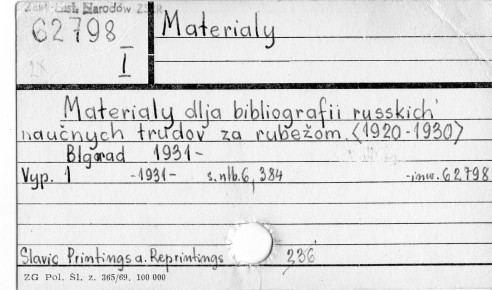 Zakł. Hist. Narodów ZSRR
62798
I
Materialy
Materialy dlja bibliografii russkich
naučnych trudov za rubežom <1920-1930>
Blgorad 1931-
Vyp. 1 -1931- s.nlb.6, 384 -inw. 62798
Slavic Printings a. Reprintings 236
ZG Pol. Sl. z. 365/69. 100 000